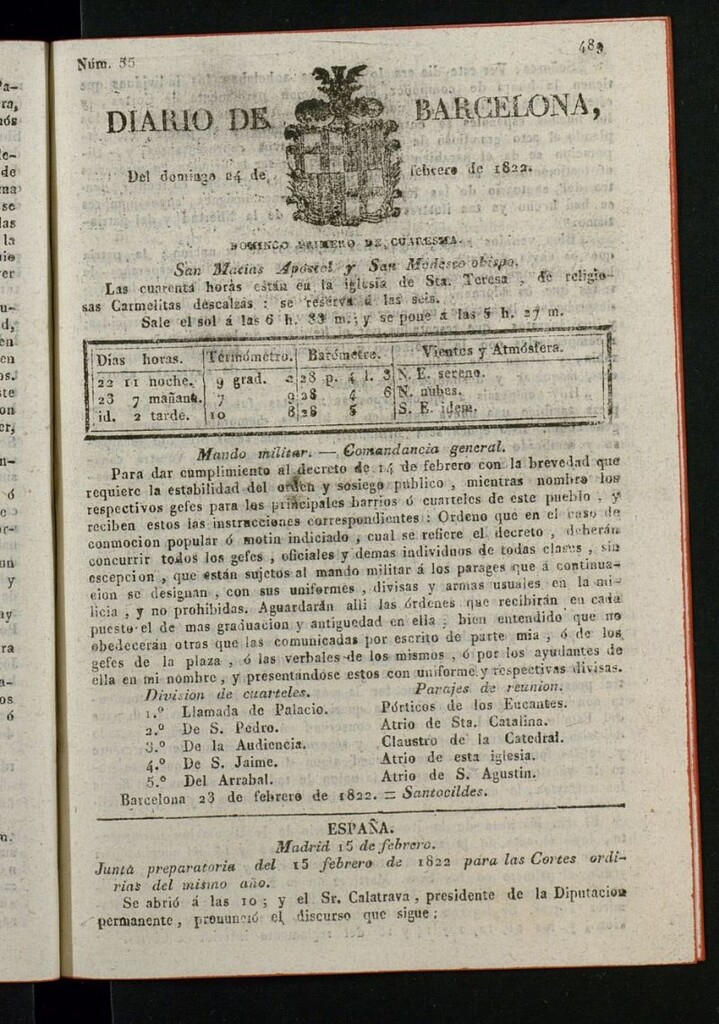 Núm. 55
483
DIARIO DE BARCELONA,
Del domingo 24 de febrero de 1822.
DOMINGO PRIMERO DE CUARESMA.
San Macias Apóstol y San Modesto obispo.
Las cuarenta horas están en la iglesia de Sta. Teresa, de religio-
sas Carmelitas descalzas : se reserva á las seis.
Sale el sol á las 6 h. 33 m.; y se pone á las 5 h. 27 m.
Dias horas. Termómetro. Barómetro. Vientos y Atmósfera.
22 11 noche. 9 grad. 2 28 p. 4 l. 3 N. E. sereno.
23 7 mañana. 7 9 28 4 6 N. nubes.
id. 2 tarde. 10 8 28 5 S. E. idem.
Mando militar. — Comandancia general.
Para dar cumplimiento al decreto de 14 de febrero con la brevedad que
requiere la estabilidad del orden y sosiego público , mientras nombro los
respectivos gefes para los principales barrios ó cuarteles de este pueblo , y
reciben estos las instrucciones correspondientes : Ordeno que en el caso de
conmocion popular ó motin indiciado , cual se refiere el decreto , deberán
concurrir todos los gefes , oficiales y demas individuos de todas clases , sin
escepcion , que están sujetos al mando militar á los parages que á continua-
cion se designan , con sus uniformes , divisas y armas usuales en la mi-
licia , y no prohibidas. Aguardarán alli las órdenes que recibirán en cada
puesto el de mas graduacion y antiguedad en ella ; bien entendido que no
obedecerán otras que las comunicadas por escrito de parte mia , ó de los
gefes de la plaza , ó las verbales de los mismos , ó por los ayudantes de
ella en mi nombre , y presentándose estos con uniforme y respectivas divisas.
Division de cuarteles. Parajes de reunion.
1.º Llamada de Palacio. Pórticos de los Encantes.
2.º De S. Pedro. Atrio de Sta. Catalina.
3.º De la Audiencia. Claustro de la Catedral.
4.º De S. Jaime. Atrio de esta iglesia.
5.º Del Arrabal. Atrio de S. Agustin.
Barcelona 23 de febrero de 1822. = Santocildes.
ESPAÑA.
Madrid 15 de febrero.
Junta preparatoria del 15 febrero de 1822 para las Cortes ordi-
rias del mismo año.
Se abrió á las 10; y el Sr. Calatrava, presidente de la Diputacion
permanente, pronunció el discurso que sigue: